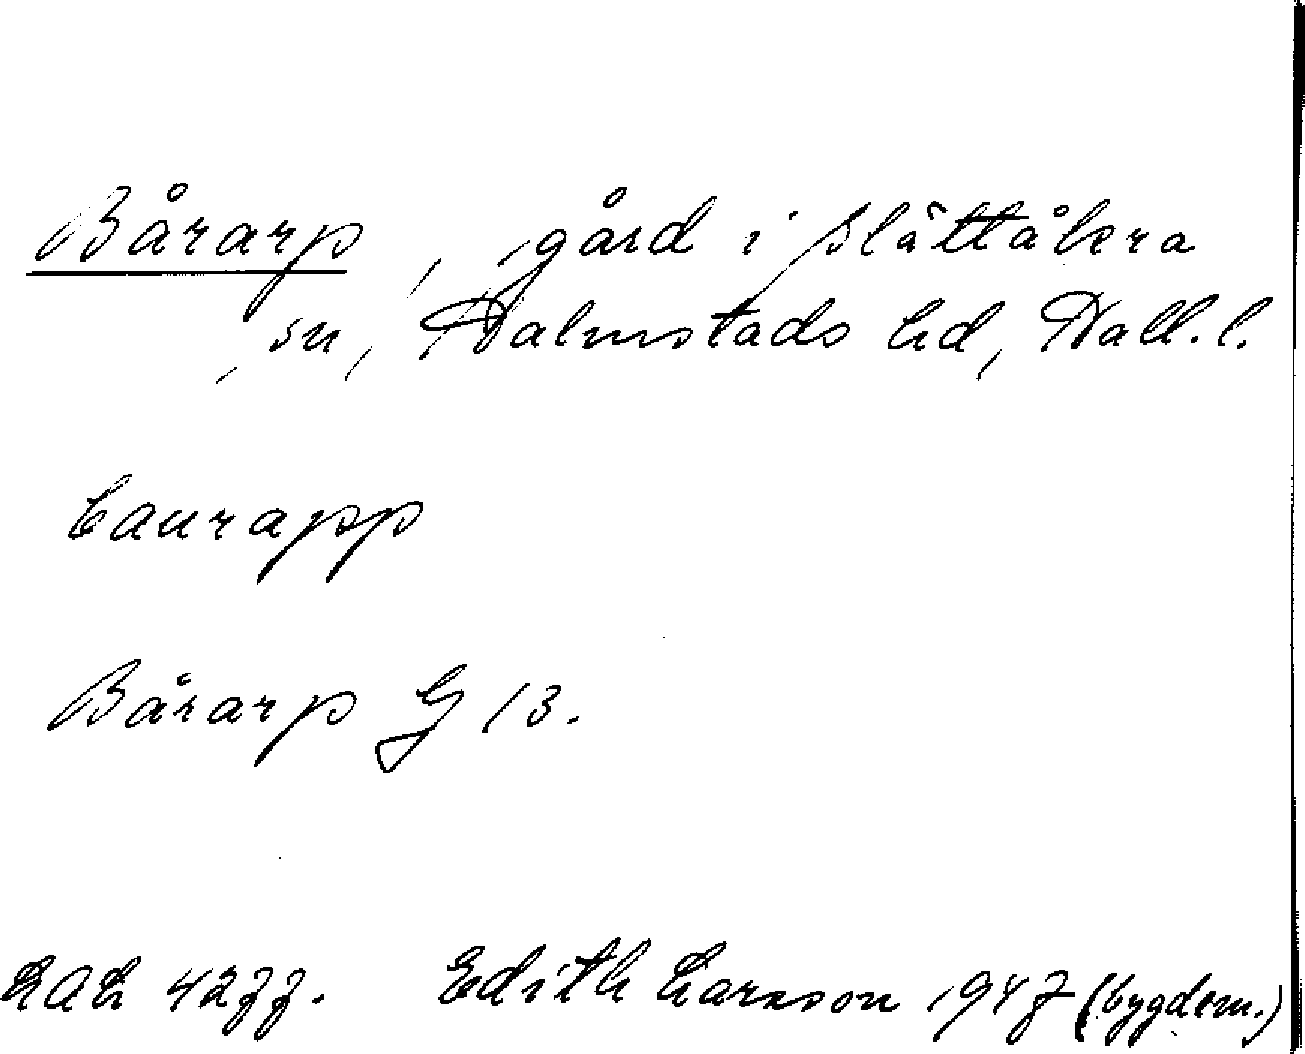 Bårarp, gård i Slättåkra
sn, Halmstads hd, Hall. l.
baurapp
Bårarp G 13.
LAL 4277. Edith Larsson 1947 (bygdem.)